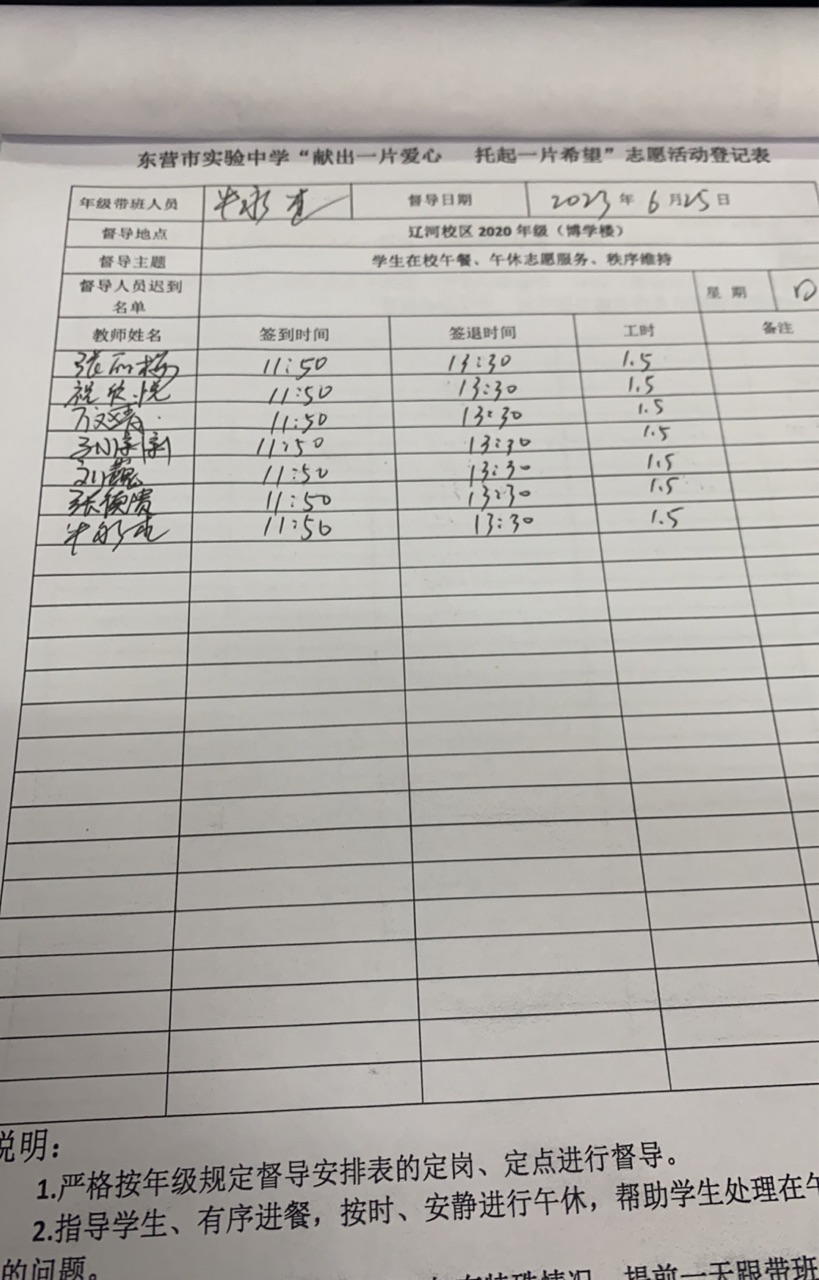 东营市实验中学“献出一片爱心 托起一片希望”志愿活动登记表
年级带班人员 督导日期 2023年6月25日
督导地点 辽河校区2020年级（博学楼）
督导主题 学生在校午餐、午休志愿服务、秩序维持
督导人员迟到名单 星期
教师姓名 签到时间 签退时间 工时 备注
11:50 13:30 1.5
11:50 13:30 1.5
11:50 13:30 1.5
11:50 13:30 1.5
刘巍 11:50 13:30 1.5
张德贵 11:50 13:30 1.5
11:50 13:30 1.5
说明：
1.严格按年级规定督导安排表的定岗、定点进行督导。
2.指导学生、有序进餐，按时、安静进行午休，帮助学生处理在午
的问题。
特殊情况，提前一天跟带班